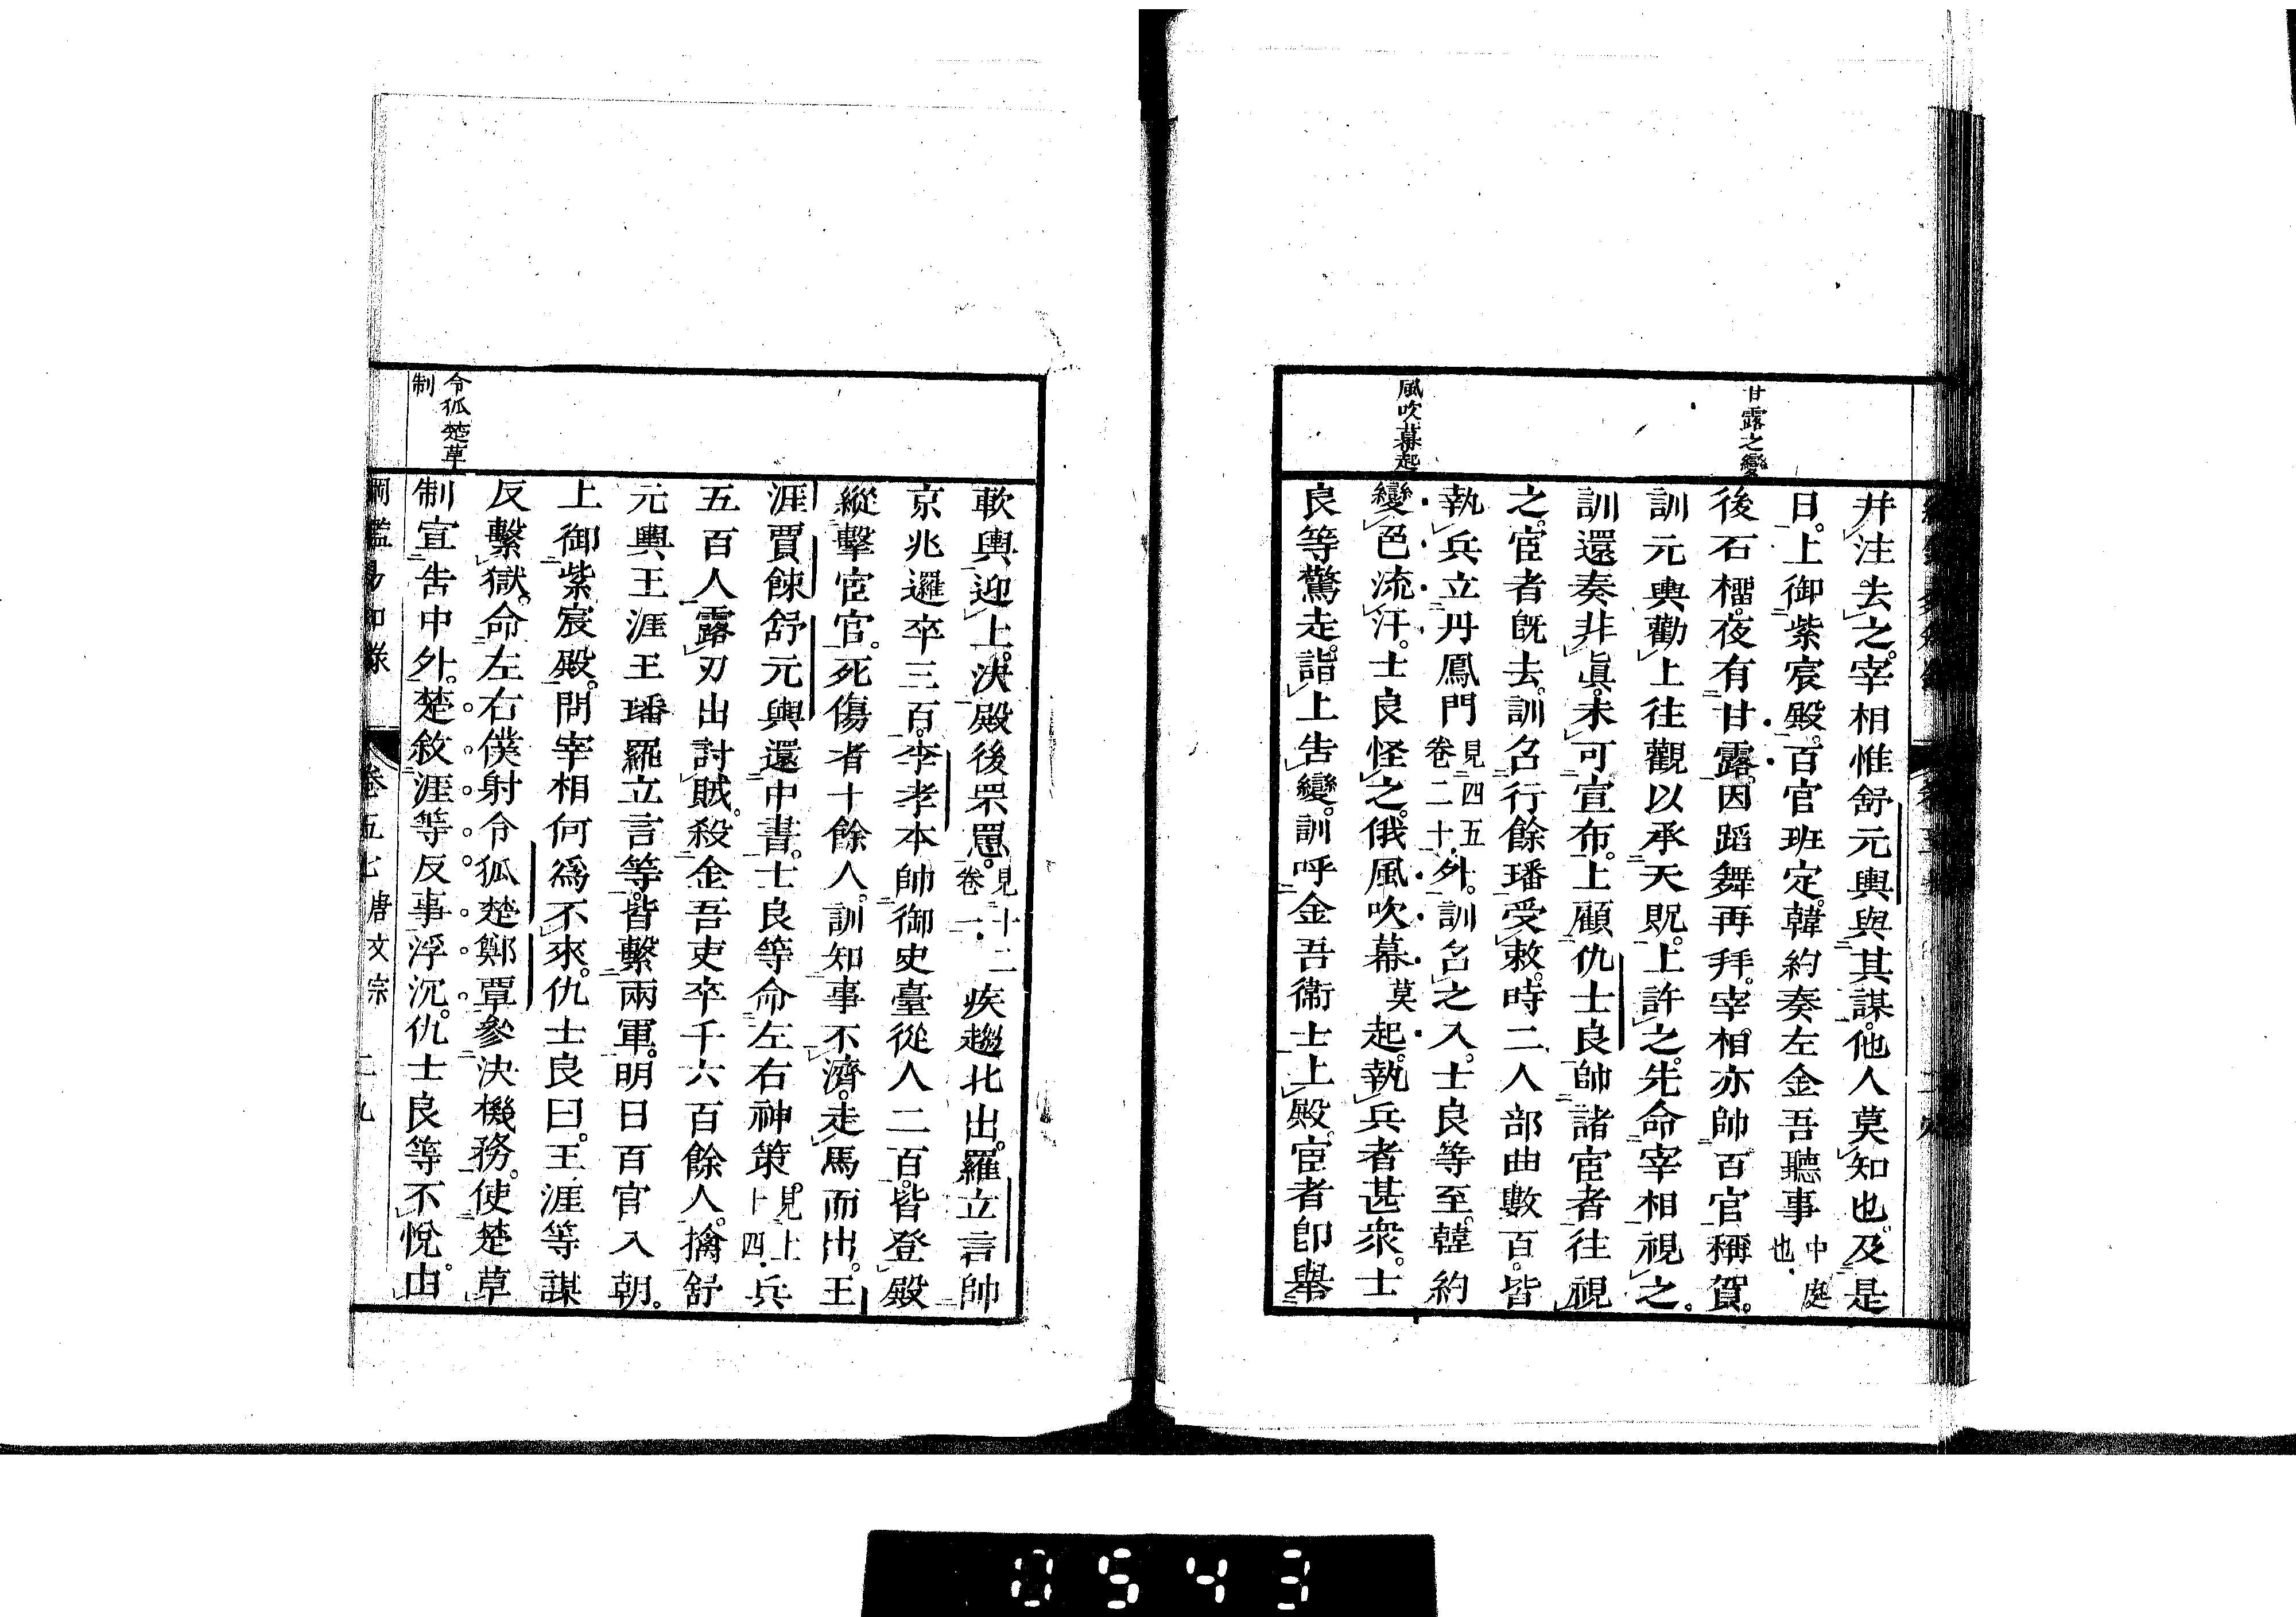 甘露之變
風吹幕起
幷注去之。宰相惟舒元輿與其謀。他人莫知也。及是
日。上御紫宸殿。百官班定。韓約奏左金吾聽事中庭也
後石榴。夜有甘露。因蹈舞再拜。宰相亦帥百官稱賀。
訓元輿勸上往觀以承天貺。上許之。先命宰相視之。
訓還奏非眞。未可宣布。上顧仇士良帥諸宦者往視
之。宦者既去。訓召行餘璠受敕。時二人部曲數百。皆
執兵立丹鳳門見四五卷二十外。訓召之入。士良等至。韓約
變色流汗。士良怪之。俄風吹幕莫起。執兵者甚衆。士
良等驚走。詣上告變。訓呼金吾衞士上殿。宦者卽舉
令狐楚草
制
軟輿迎上。決殿後罘罳。見十二卷一疾趨北出。羅立言帥
京兆邏卒三百。李孝本帥御史臺從人二百。皆登殿
縱擊宦官。死傷者十餘人。訓知事不濟。走馬而出。王
涯賈餗舒元輿還中書。士良等命左右神策見上十四兵
五百人露刃出討賊。殺金吾吏卒千六百餘人。擒舒
元輿王涯王璠羅立言等。皆繫兩軍。明日百官入朝。
上御紫宸殿。問宰相何爲不來。仇士良曰。王涯等謀
反繫獄。命左右僕射令狐楚鄭覃參決機務。使楚草
制宣告中外。楚敘涯等反事浮沉。仇士良等不悅。由
綱鑑易知錄 卷五七 唐文宗 二九
0543